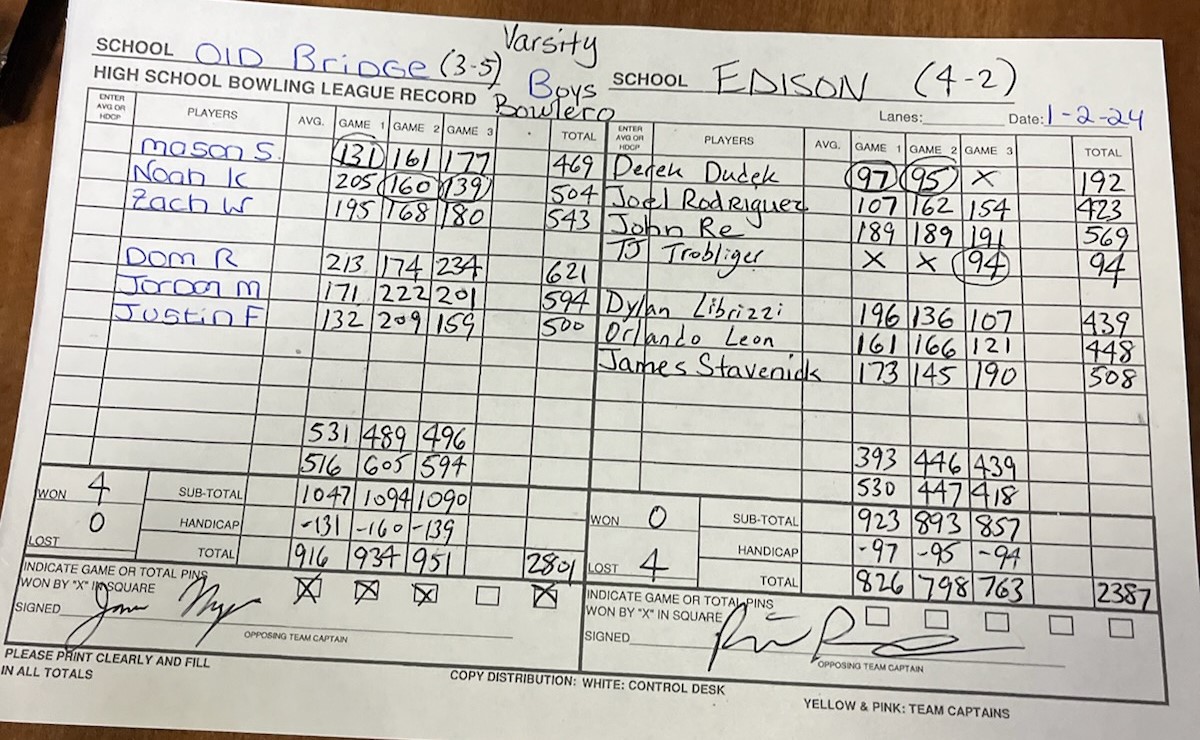 Varsity
SCHOOL OlD BriDge (3-5) Boys SCHOOL EDISON (4-2)
HIGH SCHOOL BOWLING LEAGUE RECORD Bowlero Lanes: Date: 1-2-24
ENTER AVG OR HDCP PLAYERS AVG. GAME 1 GAME 2 GAME 3 TOTAL ENTER AVG OR HDCP PLAYERS AVG. GAME 1 GAME 2 GAME 3 TOTAL
mason S. 131 161 177 469 Derek Dudek 97 95 X 192
Noah K 205 160 139 504 Joel Rodriguez 107 162 154 423
Zach W 195 168 180 543 John Re 189 189 191 569
TJ Trobliger X X 94 94
Dom R 213 174 234 621
Jordan M 171 222 201 594 Dylan Librizzi 196 136 107 439
Justin F 132 209 159 500 Orlando Leon 161 166 121 448
James Stavenick 173 145 190 508
531 489 496 393 446 439
516 605 594 530 447 418
WON 4 SUB-TOTAL 1047 1094 1090 WON 0 SUB-TOTAL 923 893 857
LOST 0 HANDICAP -131 -160 -139 HANDICAP -97 -95 -94
TOTAL 916 934 951 2801 LOST 4 TOTAL 826 798 763 2387
INDICATE GAME OR TOTAL PINS WON BY "X" IN SQUARE X X X X INDICATE GAME OR TOTAL PINS WON BY "X" IN SQUARE
SIGNED SIGNED
OPPOSING TEAM CAPTAIN OPPOSING TEAM CAPTAIN
PLEASE PRINT CLEARLY AND FILL
IN ALL TOTALS COPY DISTRIBUTION: WHITE: CONTROL DESK
YELLOW & PINK: TEAM CAPTAINS